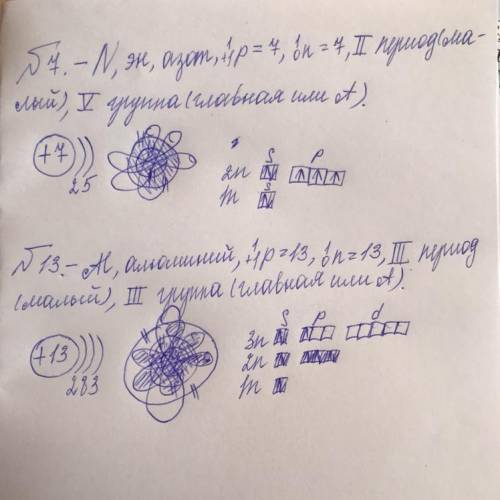 N7. – N, эн, азот, ¹₊₁p = 7, ¹₀n = 7, II период(ма-
лый), V группа (главная или А).
+7
2 5
S P
2n
S
1n
N13. – Al, алюминий, ¹₊₁p = 13, ¹₀n = 13, III период
(малый), III группа (главная или А).
+13
2 8 3
S P d
3n
2n
1n